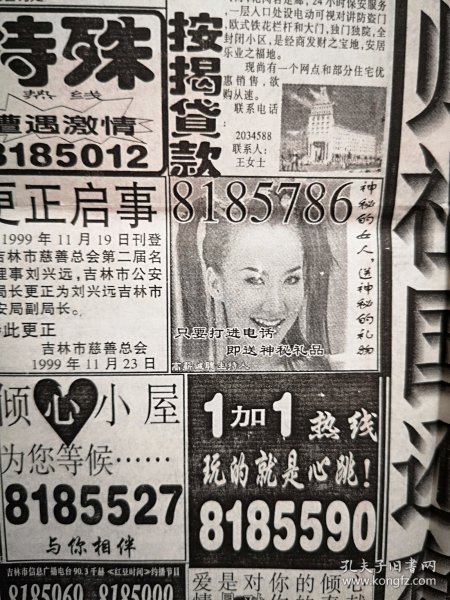 特殊
热线
遭遇激情
8185012
按揭貸款
24小时保安服务
一层入口处设电动可视对讲防盗门
,欧式铁花栏杆和大门,独门独院,全
封闭小区,是经商发财之宝地,安居
乐业之福地。
现尚有一个网点和部分住宅优
惠销售,欲
购从速。
联系电话
:
2034588
联系人:
王女士
更正启事
1999年11月19日刊登
吉林市慈善总会第二届名
理事刘兴远,吉林市公安
局长更正为刘兴远吉林市
安局副局长。
此更正
吉林市慈善总会
1999年11月23日
8185786
神秘的女人,送神秘的礼物
只要打进电话
即送神秘礼品
高薪诚聘主持人
倾心小屋
为您等候……
8185527
与你相伴
1加1热线
玩的就是心跳!
8185590
吉林市信息广播电台90.3千赫《红豆时间》约播节目
8185060 8185000
爱是对你的倾心
孔夫子旧书网